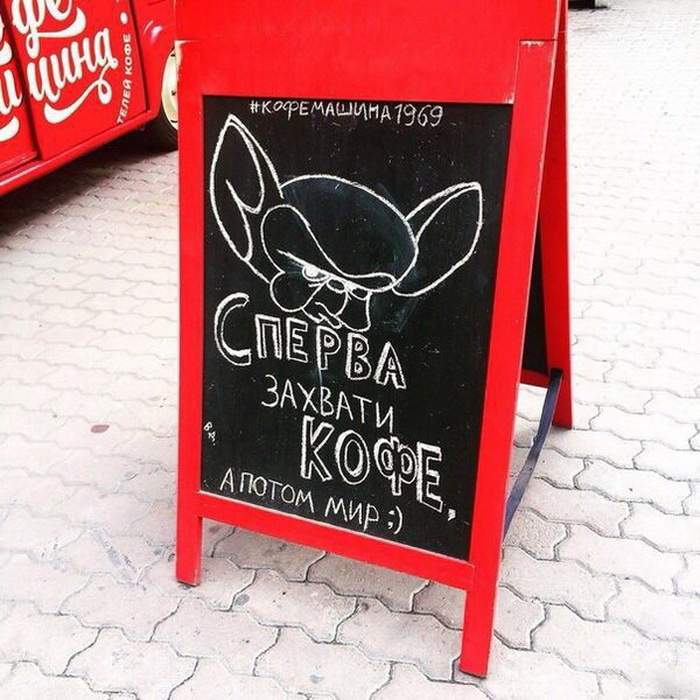 #КОФЕМАШИНА1969
СПЕРВА
ЗАХВАТИ
КОФЕ,
А ПОТОМ МИР ;)
ТЕЛЕЙ КОФЕ